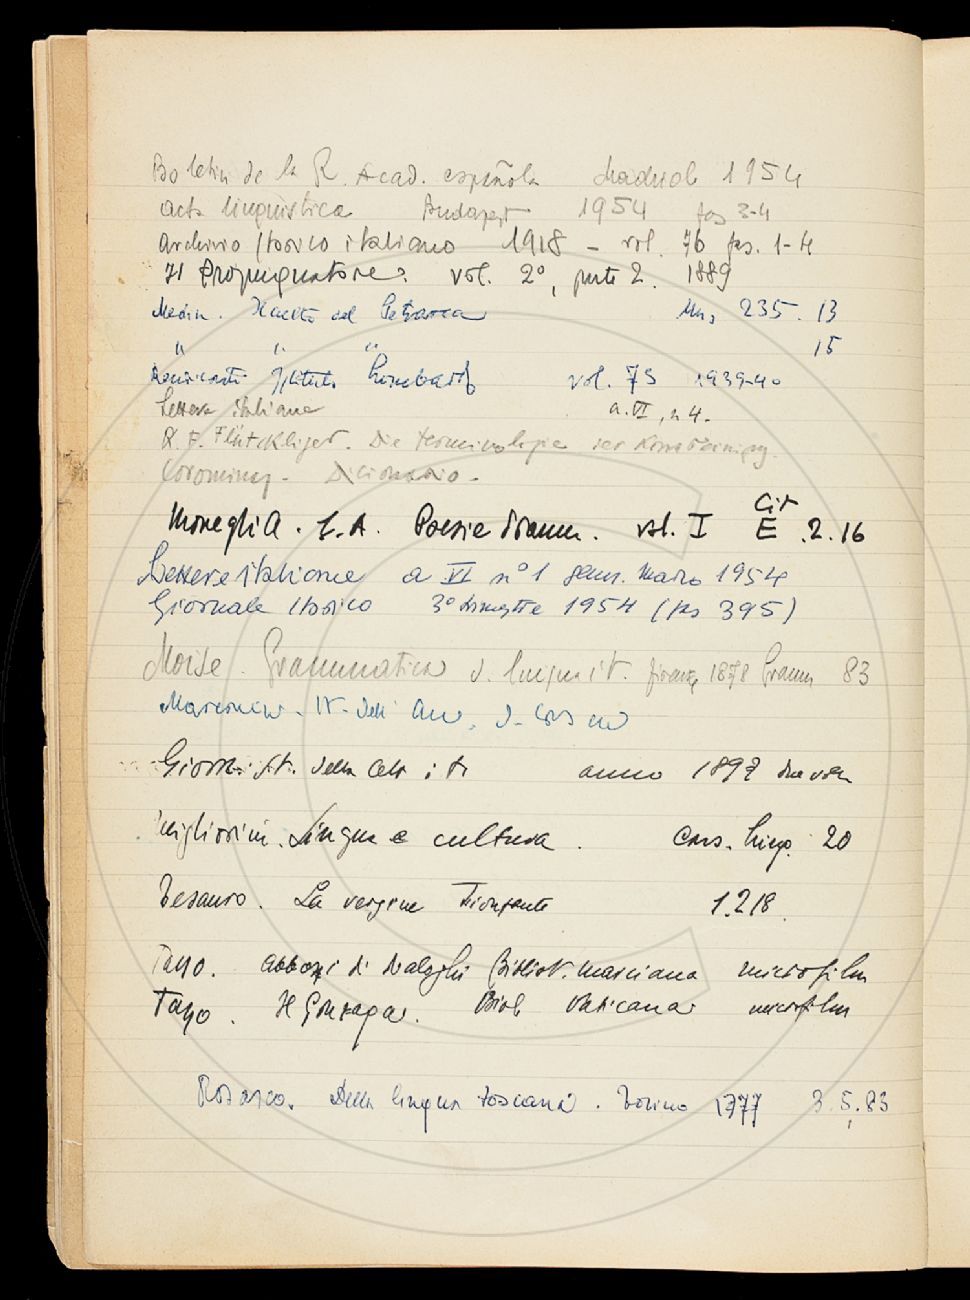 Boletin de la R. Acad. española Madrid 1954
acta linguistica Budapest 1954 fas 3-4
archivio storico italiano 1918 - vol. 76 fas. 1-4
Il Propugnatore. vol. 2°, parte 2. 1889
Medin. del Petrarca 235. 13
" " " 15
Rendiconti Istituto Lombardo vol. 73 1939-40
Lettere italiane a. VI, n 4.
Die Terminologie der
Corominas - Dicionario -
Moneglia. G. A. Poesie dramm. vol. I Cit E .2.16
Lettere italiane a VI n° 1 genn. marzo 1954
Giornale storico 3° trimestre 1954 (fas 395)
Moise. Grammatica d. lingua it. firenze 1878 Gramm 83
It.
Giorn. st. della lett it anno 1897 due vol.
Migliorini. Lingua e cultura. Cons. ling. 20
Tesauro. La vergine Trionfante 1.218.
Tasso. abbozzi di Dialoghi Bibliot. Marciana microfilm
Tasso. Il Gonzaga. Bibl Vaticana microfilm
Rosasco. Della lingua toscana. Torino 1777 3.5.83